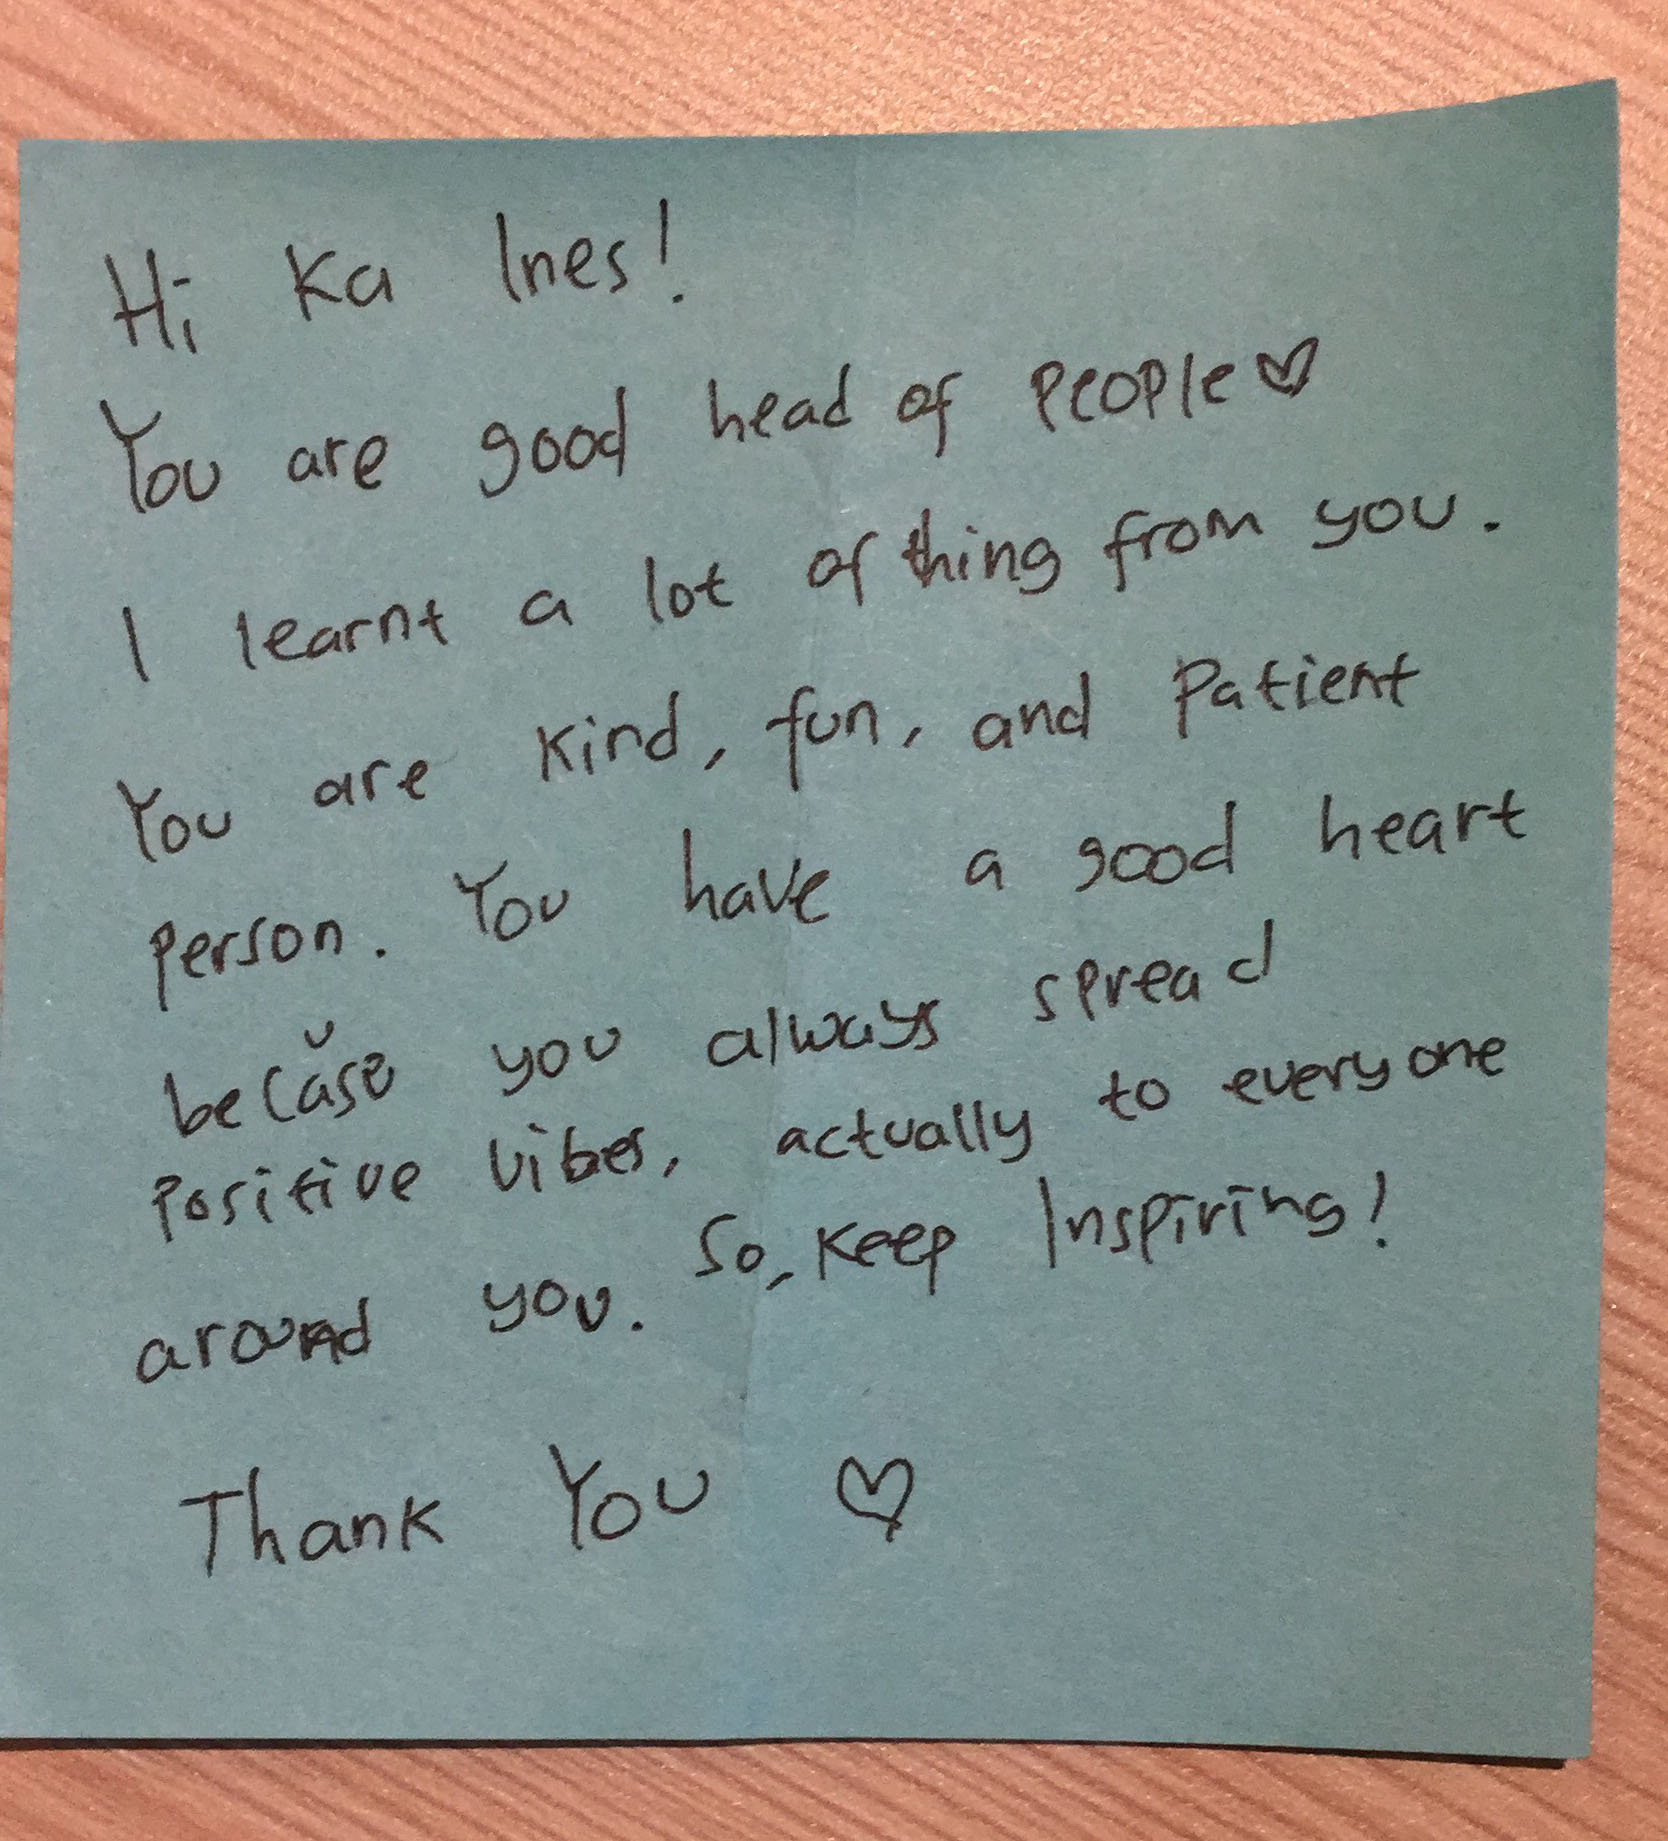 Hi Ka Ines!
You are good head of people ♡
I learnt a lot of thing from you.
You are kind, fun, and patient
person. You have a good heart
because you always spread
positive vibes, actually to everyone
around you. So, keep Inspiring!
Thank You ♡